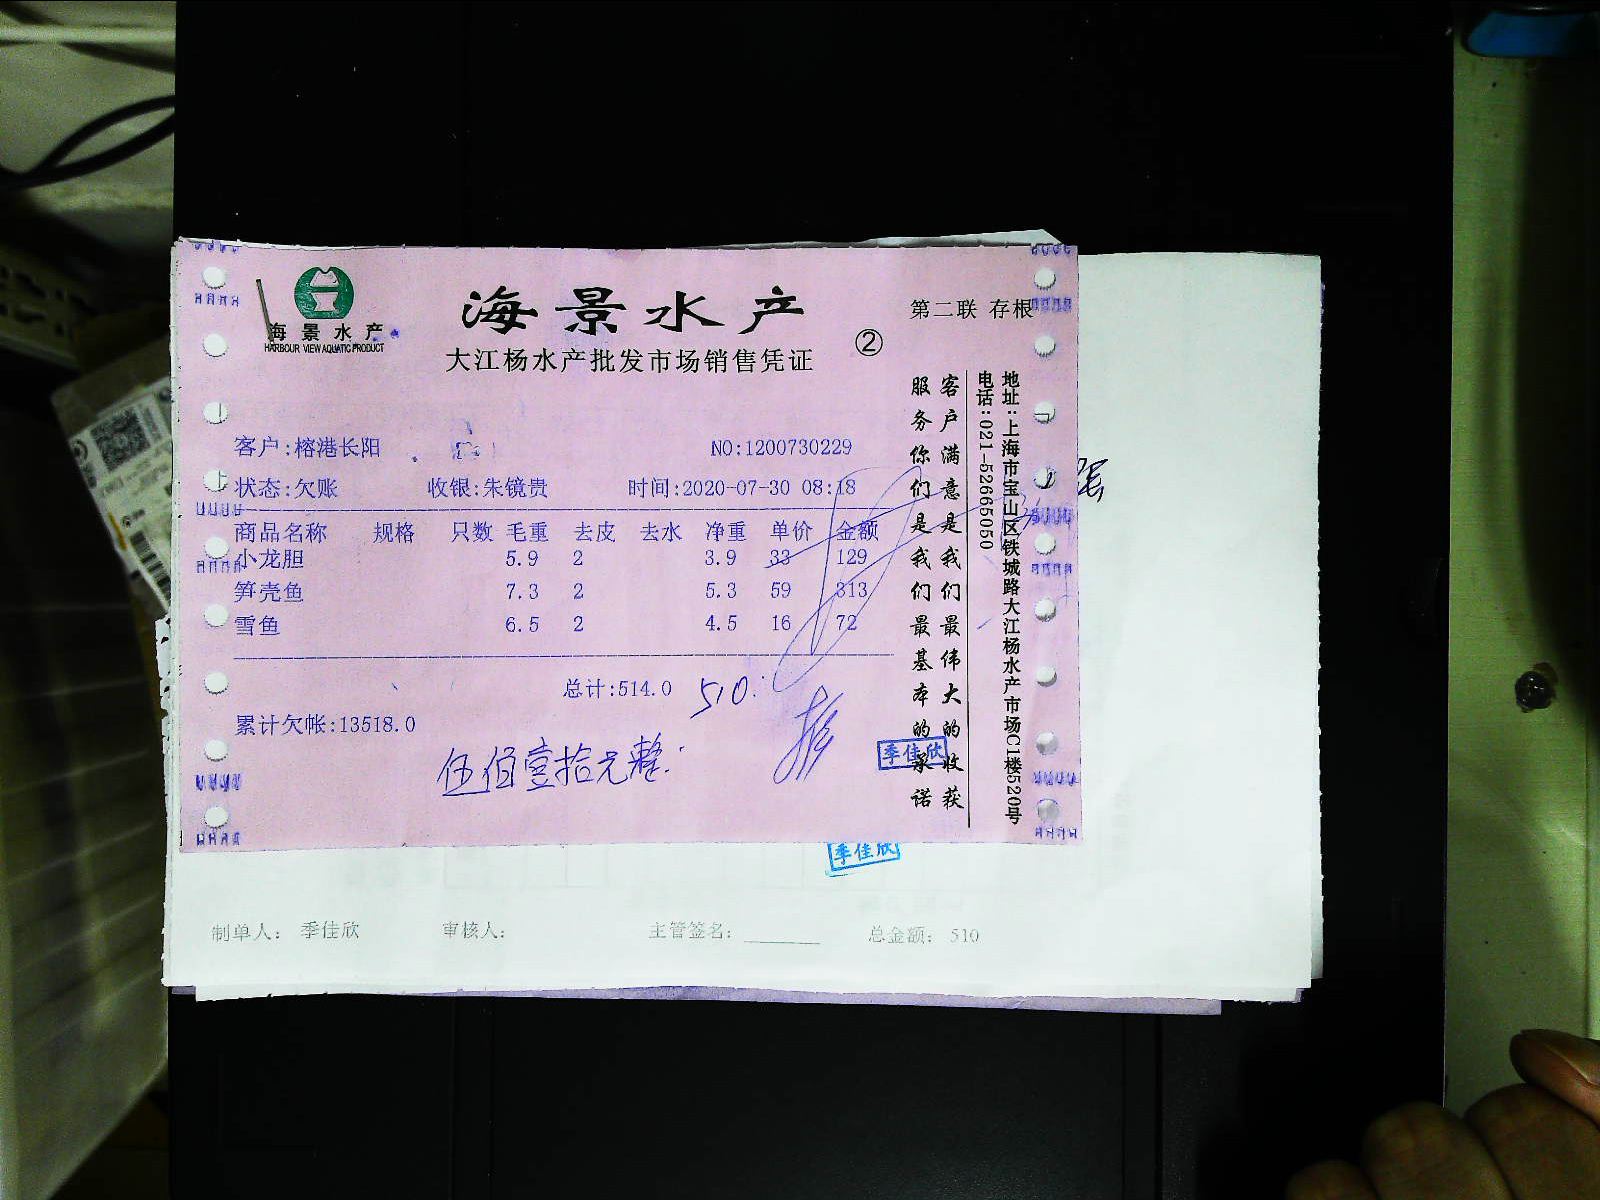 海景水产
HARBOUR VIEW AQUATIC PRODUCT
海景水产
大江杨水产批发市场销售凭证
②
第二联 存根
客户:榕港长阳
NO:1200730229
状态:欠账 收银:朱镜贵 时间:2020-07-30 08:18
商品名称 规格 只数 毛重 去皮 去水 净重 单价 金额
小龙胆 5.9 2 3.9 33 129
笋壳鱼 7.3 2 5.3 59 313
雪鱼 6.5 2 4.5 16 72
总计:514.0 510.
累计欠帐:13518.0
伍佰壹拾元整.
季佳欣
地址:上海市宝山区铁城路大江杨水产市场C1楼520号
电话:021-52665050
客户满意是我们最伟大的收获
服务你们是我们最基本的承诺
季佳欣
制单人: 季佳欣 审核人: 主管签名: 总金额: 510